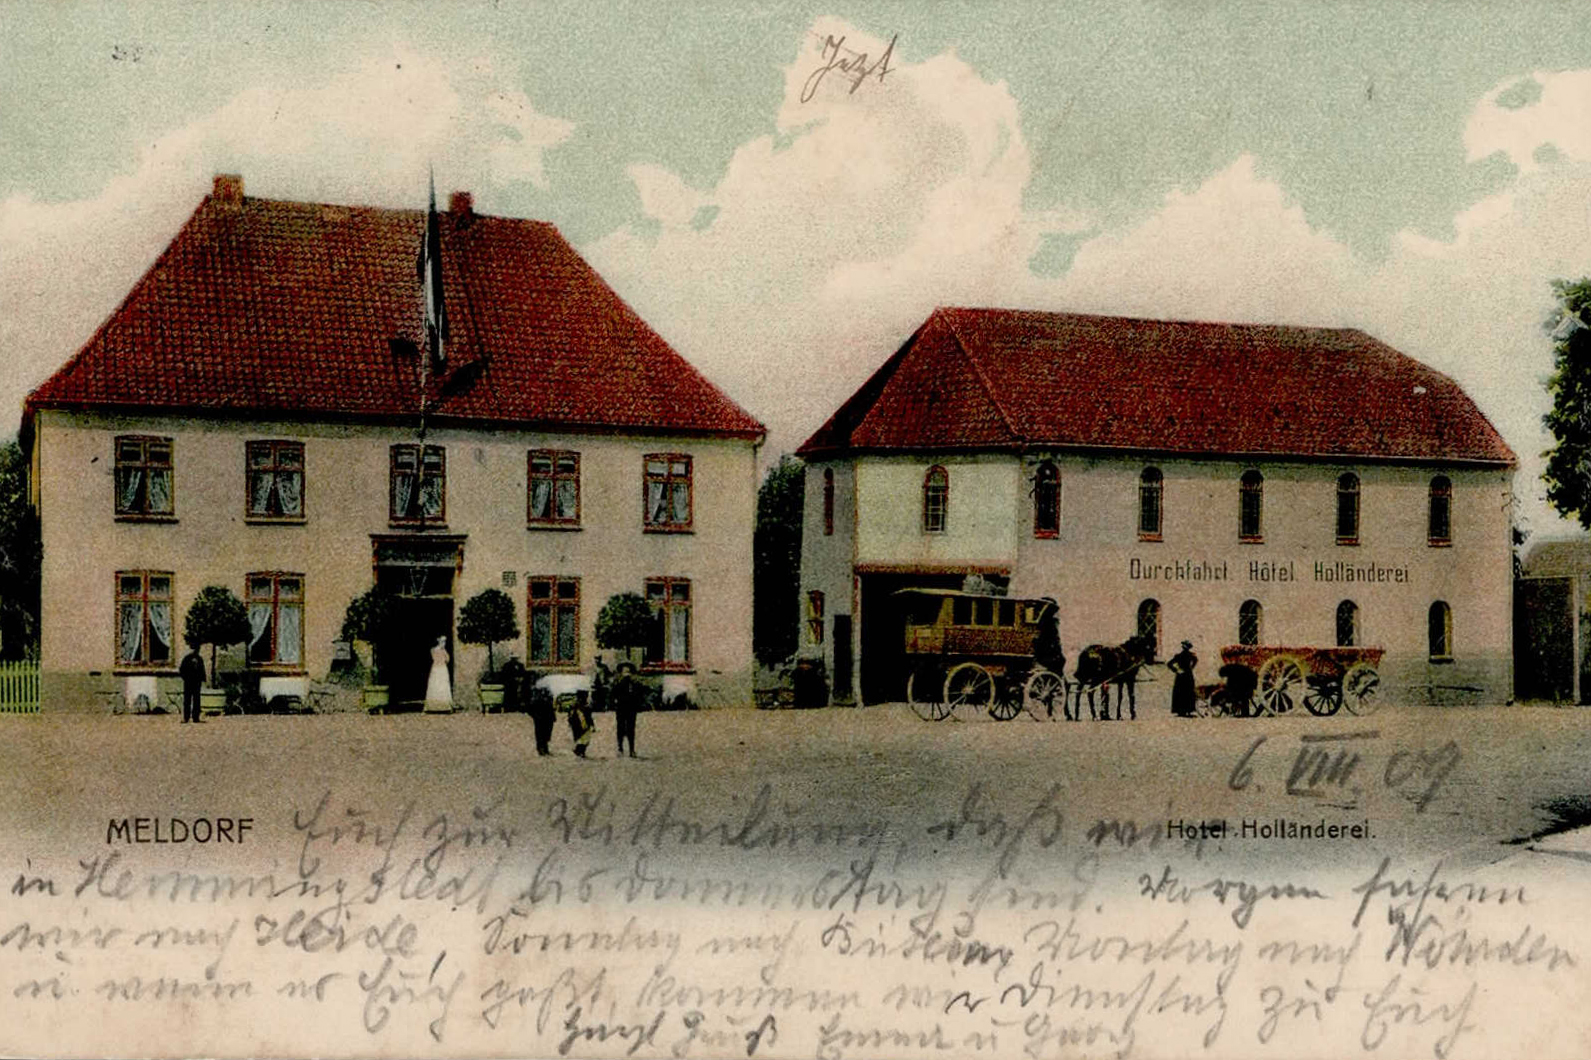 Jetzt
Durchfahrt. Hôtel. Holländerei.
6. VIII. 09
MELDORF
Hotel Holländerei.
Euch zur Mitteilung, daß wir
in Hemmingstedt bis Donnerstag sind. Morgen fahren
wir nach Heide, Sonntag nach Montag nach Wöhrden
u. wenn es Euch paßt, kommen wir Dienstag zu Euch
Herzl Gruß Emma u Georg